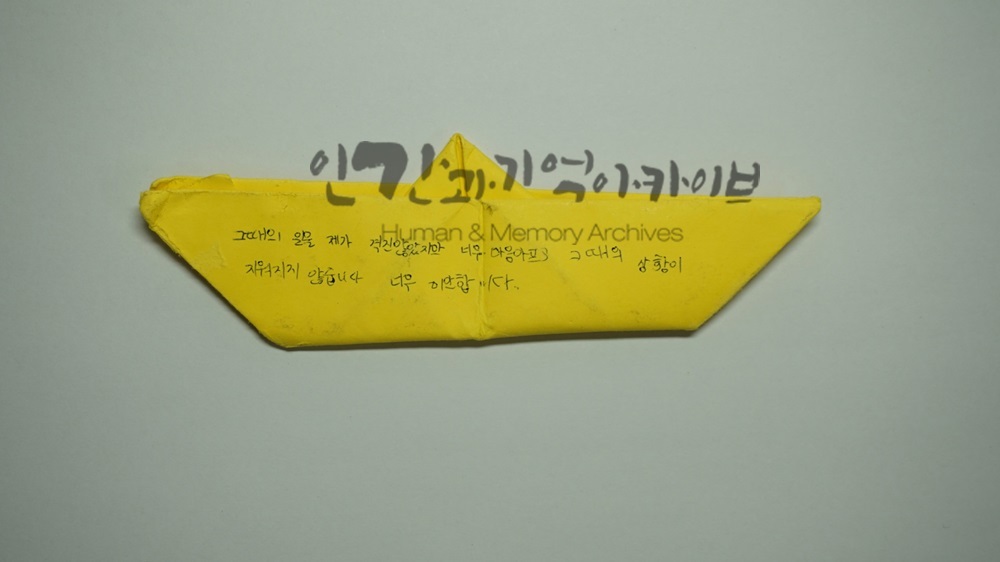 인간과기억아카이브
Human & Memory Archives
그때의 일을 제가 격진않았지만 너무 마음아프고 그때의 상황이
지워지지 않습니다 너무 미안합니다..